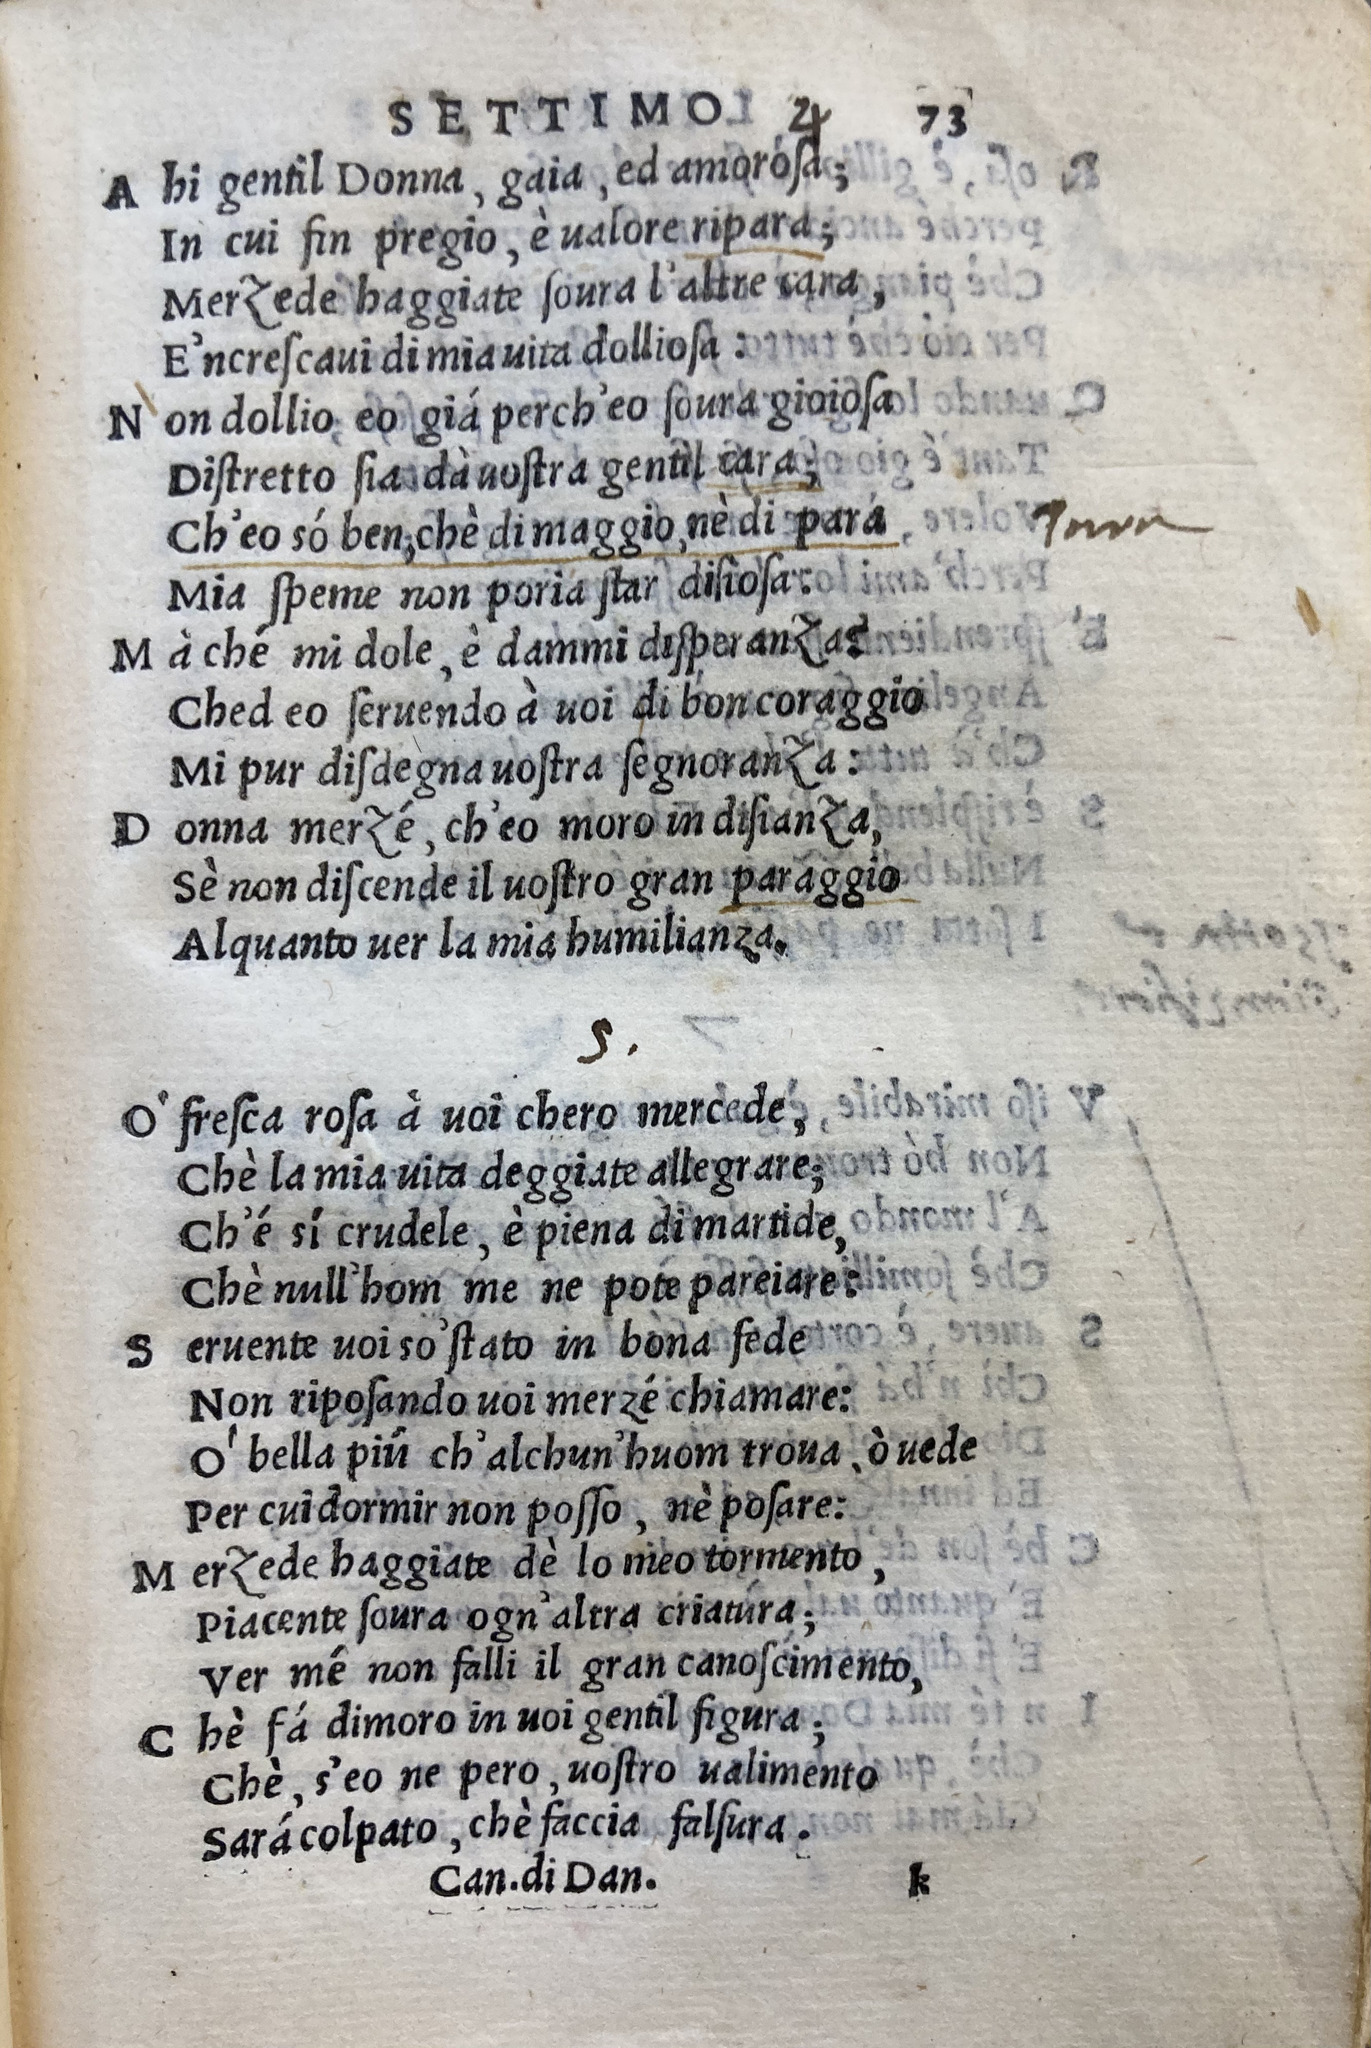 SETTIMO 4 73
Ahi gentil Donna, gaia, ed amorosa;
In cui fin pregio, è ualore ripara;
Merzede haggiate ſoura l'altre cara,
E'ncreſcaui di mia uita dollioſa:
Non dollio eo giá perch'eo ſoura gioioſa
Diſtretto ſia dà uoſtra gentil cara;
Ch'eo só ben, chè di maggio, nè di pará
Mia ſpeme non poria ſtar diſioſa:
Mà ché mi dole, è dammi diſperanza?
Ched eo ſeruendo à uoi di bon coraggio
Mi pur diſdegna uoſtra ſegnoranza:
Donna merzé, ch'eo moro in diſianza,
Sè non diſcende il uoſtro gran paraggio
Alquanto uer la mia humilianza.
5.
O' freſca roſa à uoi chero mercede,
Chè la mia uita deggiate allegrare;
Ch'é sí crudele, è piena di martide,
Chè null'hom me ne pote pareiare:
Seruente uoi so'ſtato in bona fede
Non ripoſando uoi merzé chiamare:
O' bella piú ch'alchun'huom troua, ò uede
Per cui dormir non poſſo, nè poſare:
Merzede haggiate dè lo meo tormento,
Piacente ſoura ogn'altra criatúra;
Ver mé non falli il gran canoſcimento,
Chè fá dimoro in uoi gentil figura;
Chè, s'eo ne pero, uoſtro ualimento
Sará colpato, chè faccia falſura.
Can. di Dan. k